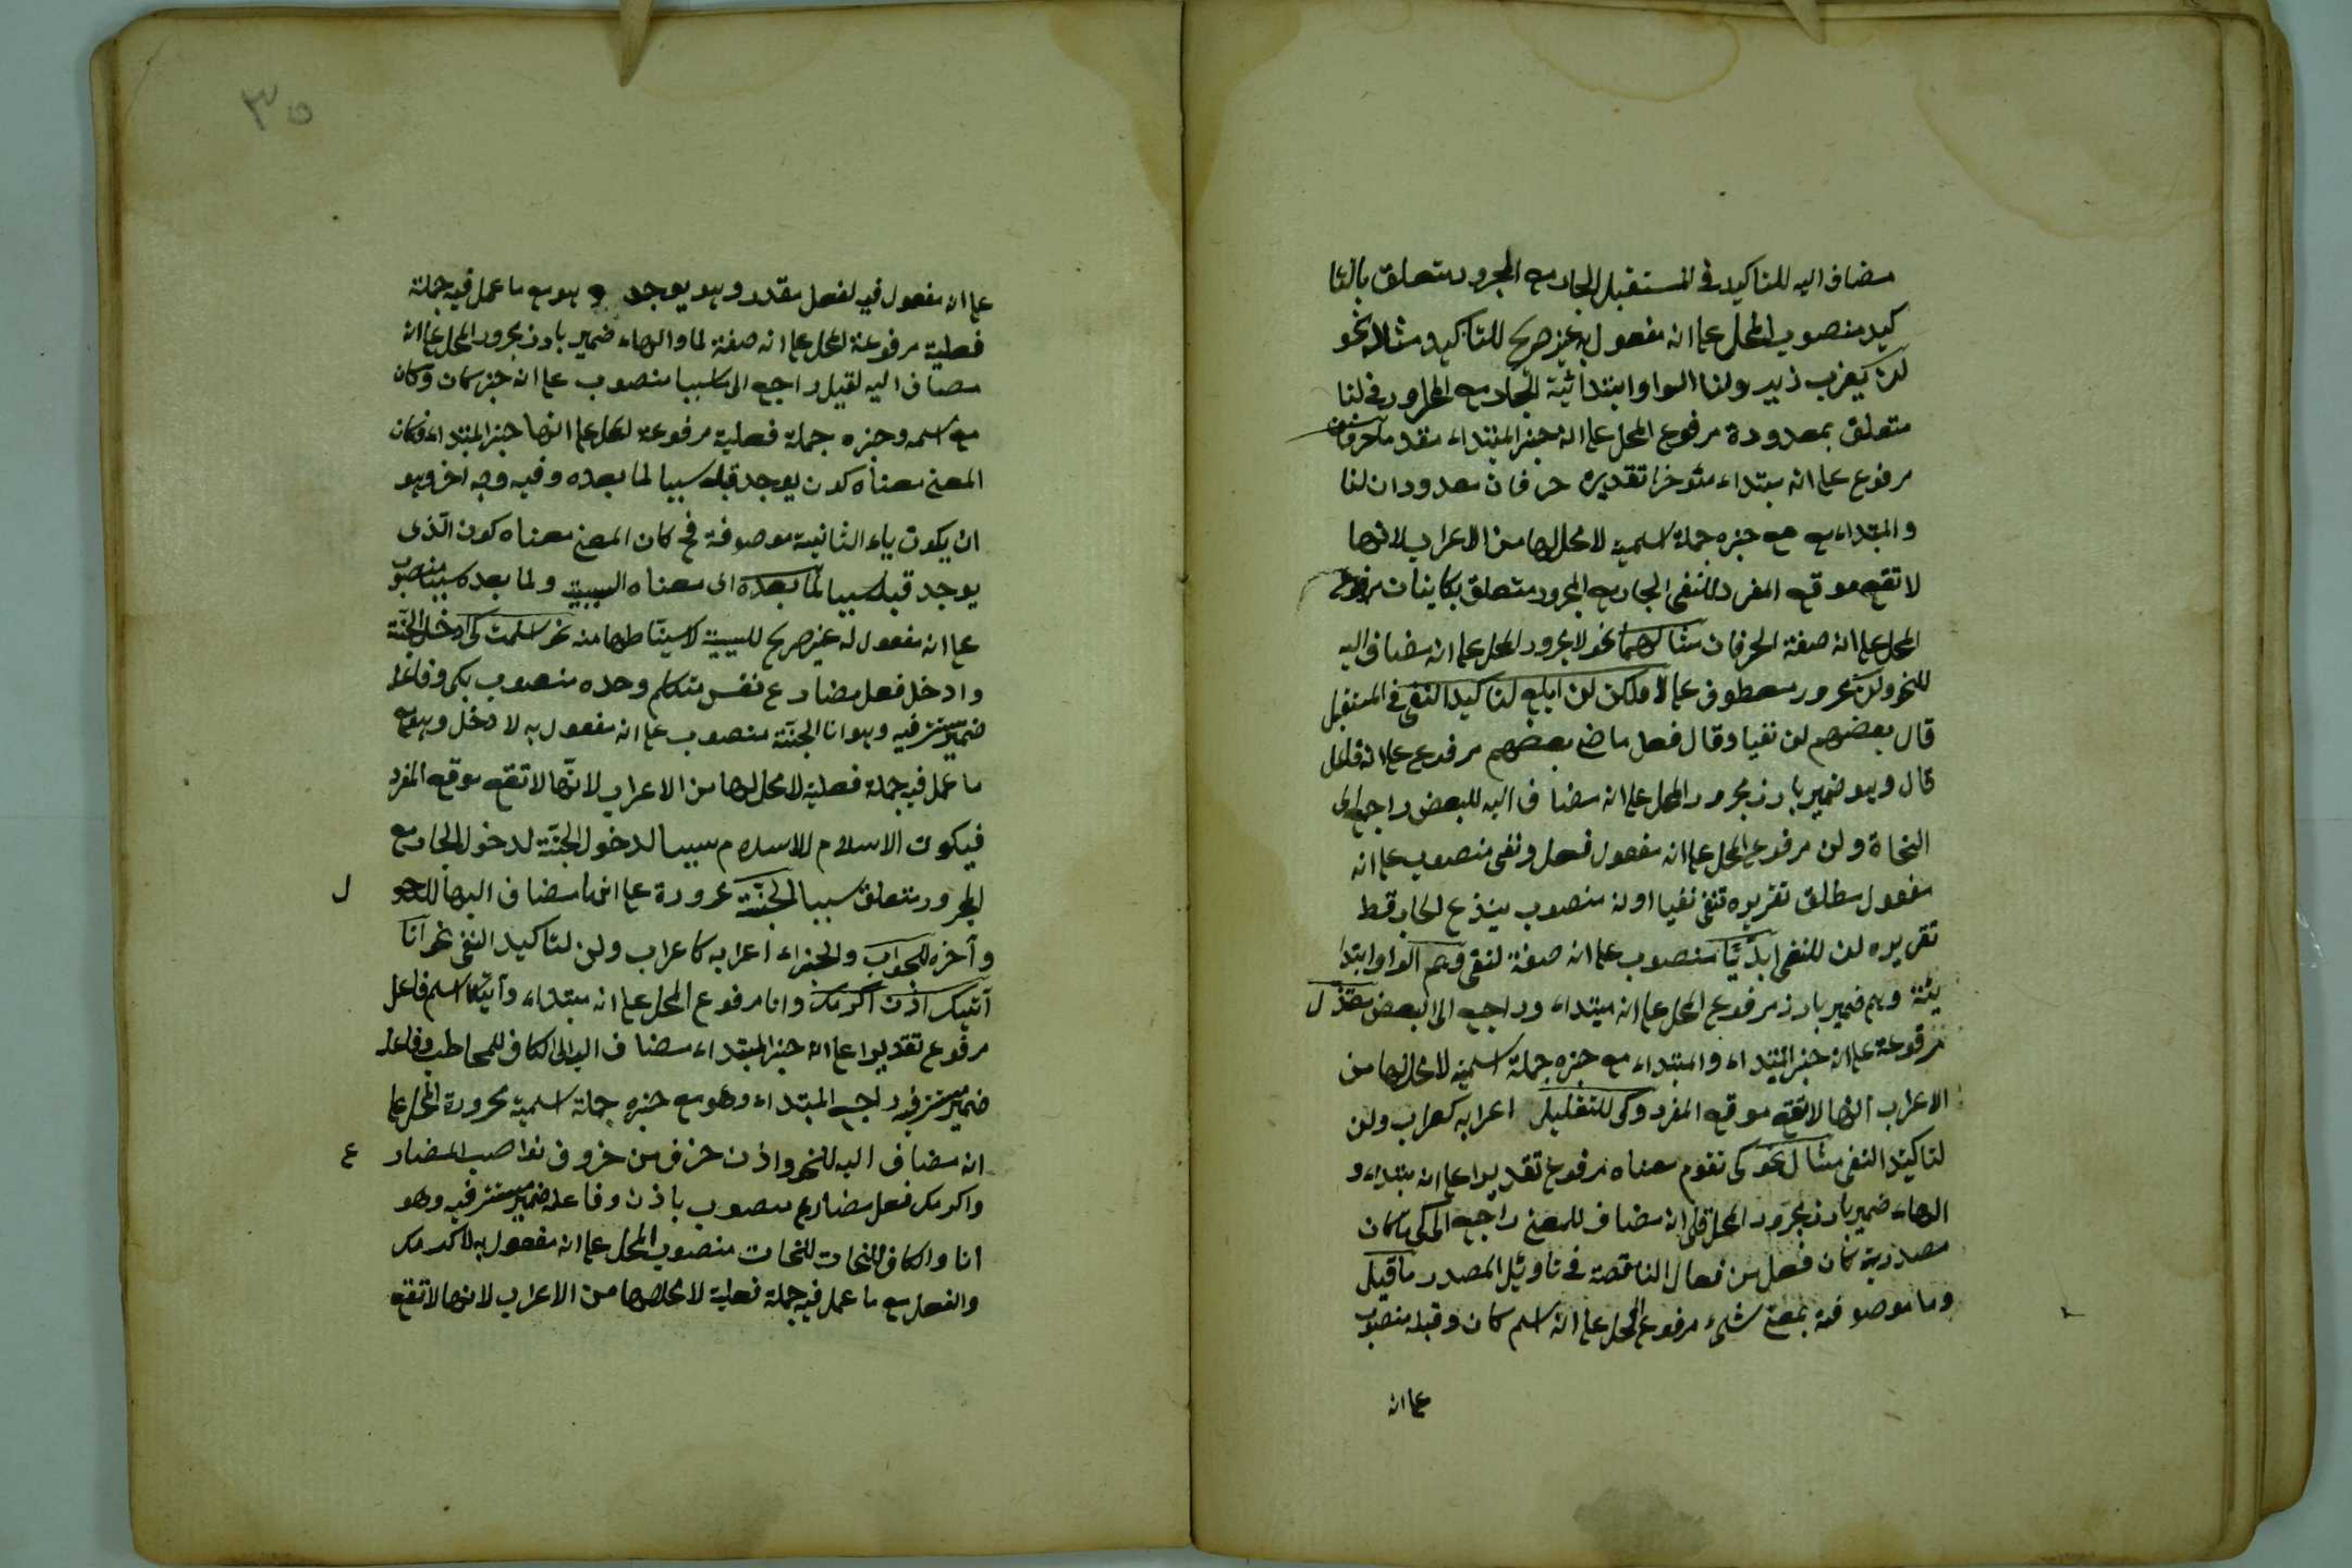 مضاف اليه للتاكيد في المستقبل الجار مع المجرور متعلق بالتا
كيد منصوب المحل على انه مفعول به غير صريح للتاكيد مثلا نحو
لن يضرب زيد ولنا الواو ابتدائية الجار مع المجرور في لنا
متعلق بمعدودة مرفوع المحل على انه خبر المبتداء مقدم حرفان
مرفوع على انه مبتداء مئوخر تقديره حرفان معدودان لنا
والمبتداء مع خبره جملة اسمية لا محل لها من الاعراب لانها
لا تقع موقع المفرد للنفى الجار مع المجرور متعلق بكاينان مرفوع
المحل على انه صفة الحرفان مثالهما نحو لا مجرور المحل على انه مضاف اليه
للنحو ولن مجرور معطوف على لا ولكن لن ابلغ لتاكيد النفى في المستقبل
قال بعضهم لن نفيا وقال فعل ماض بعضهم مرفوع على انه فاعل
قال وهو ضمير بارز مجرور المحل على انه مضاف اليه للبعض راجع الى
النحاة ولن مرفوع المحل على انه مفعول فعل ونفى منصوب على انه
مفعول مطلق تقريره تنفى نفيا اونه منصوب بنزع الجار قط
تقريره لن للنفى ابديّا منصوب على انه صفة لنفى وهم الواو ابتدا
ئية وهم ضمير بارز مرفوع المحل على انه مبتداء وراجع الى البعض
مرفوعة على انه خبر المبتداء والمبتداء مع خبره جملة اسمية لا محل لها من
الاعراب لانها لا تقع موقع المفرد وكى للتعليل اعرابه كعراب ولن
لتاكيد النفى مثال نحو كى تقوم معناه مرفوع تقديرا على انه مبتداء و
الهاء ضمير بارز مجرور المحل على انه مضاف للمعنى راجع الى كى ما كان
مصدرية كان فعل من فعال الناقصة في تاويل المصدر ما قبل
وما موصوفة بمعنى شئ مرفوع المحل على انه اسم كان وقبله منصوب
على انه
٣٥
على انه مفعول فيه لفعل مقدر وهو يوجد وهو مع ما عمل فيه جملة
فعلية مرفوعة المحل على انه صفة لما والهاء ضمير بارز مجرور المحل على انه
مضاف اليه لقبل راجع الى ما سببا منصوب على انه خبر كان وكان
مع اسمه وخبره جملة فعلية مرفوعة المحل على انها خبر المبتداء فكان
المعنى معناه كون يوجد قبله سببا لما بعده وفيه وجه اخر وهو
ان يكون ياء الثانية موصوفة فح كان المعنى معناه كون الّذى
يوجد قبله سببا لما بعده اى معناه السببية ولما بعده سببا منصوب
على انه مفعول له غير صريح للسببية منه نحو اسلمت كى ادخل الجنّة
وادخل فعل مضارع نفس متكلم وحده منصوب بكى وفاعله
ضمير مستتر فيه وهو انا الجنّة منصوب على انه مفعول به لا دخل وهو مع
ما عمل فيه جملة فعلية لا محل لها من الاعراب لانّها لا تقع موقع المفرد
فيكون الاسلام للاسلام سببا لدخول الجنّة لدخول الجار مع
المجرور متعلق سببا الجنّة مجرورة على انها مضاف اليها للدخو ل
وآخره للجواب والجزاء اعرابه كاعراب ولن لتاكيد النفى نحو انا
آتيك اذن اكرمك وانا مرفوع المحل على انه مبتداء وآتيك اسم فاعل
مرفوع تقديرا على انه خبر المبتداء مضاف اليه الى الكاف للمخاطب وفاعله
ضمير مستتر فيه راجع المبتداء وهو مع خبره جملة اسمية مجرورة المحل على
انه مضاف اليه للنحو واذن حرف من حروف نواصب المضار ع
واكرمك فعل مضارع منصوب باذن وفاعله ضمير مستتر فيه وهو
انا والكاف للنحات للنحات منصوب المحل على انه مفعول به لاكرمك
والفعل مع ما عمل فيه جملة فعلية لا محل لها من الاعراب لانها لا تقع